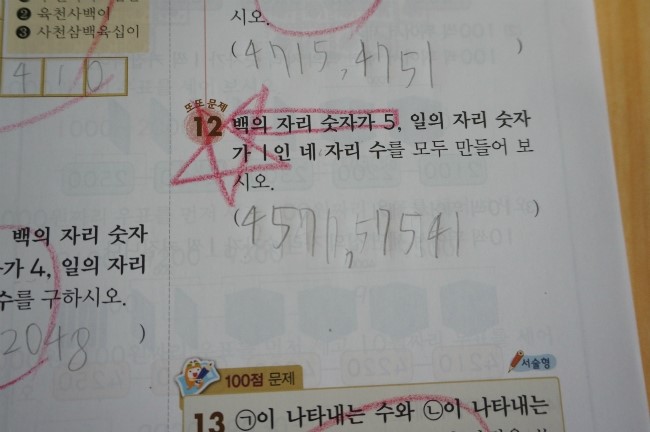 ❷ 육천사백이
❸ 사천삼백육십이
4 1 0
시오.
(4715, 4751)
또또 문제
12 백의 자리 숫자가 5, 일의 자리 숫자
가 1인 네 자리 수를 모두 만들어 보
시오.
(4571, 57541)
백의 자리 숫자
가 4, 일의 자리
수를 구하시오.
2048 )
서술형
100점 문제
13 ㉠이 나타내는 수와 ㉡이 나타내는